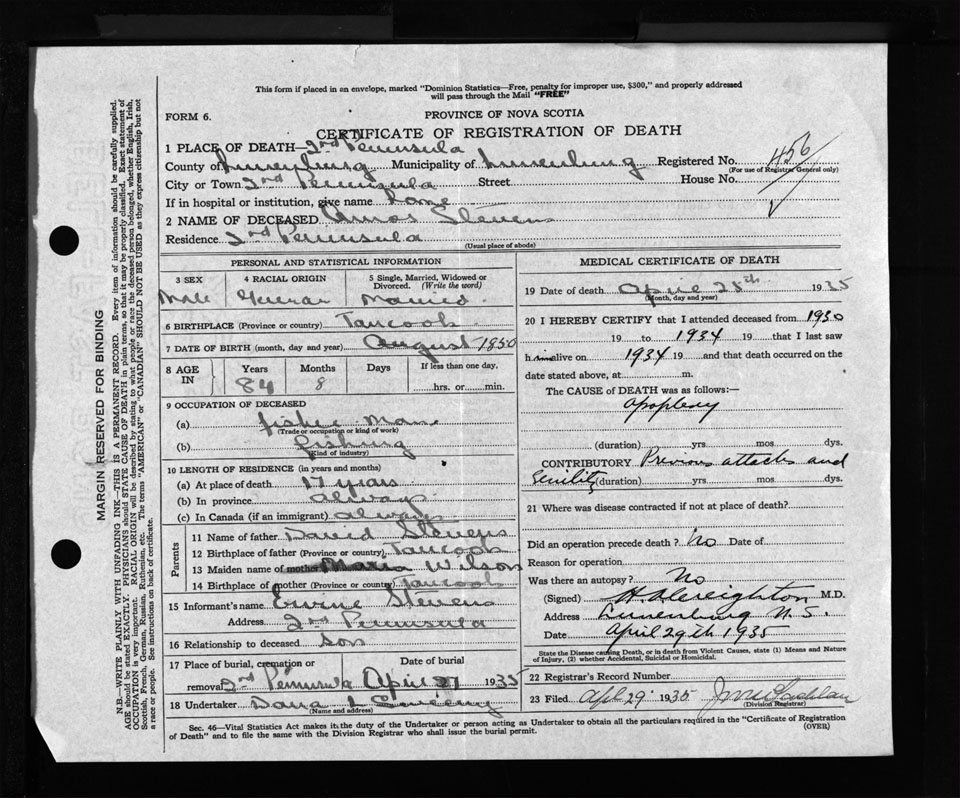 This form if placed in an envelope, marked "Dominion Statistics—Free, penalty for improper use, $300," and properly addressed
will pass through the Mail "FREE"
FORM 6.
PROVINCE OF NOVA SCOTIA
CERTIFICATE OF REGISTRATION OF DEATH
1 PLACE OF DEATH—2nd Peninsula
County of Lunenburg Municipality of Lunenburg Registered No. 456
(For use of Registrar General only)
City or Town 2nd Peninsula Street House No.
If in hospital or institution, give name home
2 NAME OF DECEASED Amos Stevens
Residence 2nd Peninsula
(Usual place of abode)
PERSONAL AND STATISTICAL INFORMATION
3 SEX 4 RACIAL ORIGIN 5 Single, Married, Widowed or Divorced. (Write the word)
Male German Married
6 BIRTHPLACE (Province or country) Tancook
7 DATE OF BIRTH (month, day and year) August 1850
8 AGE IN Years Months Days If less than one day,
84 8 hrs. or min.
9 OCCUPATION OF DECEASED
(a) fisher man
(Trade or occupation or kind of work)
(b) fishing
(Kind of industry)
10 LENGTH OF RESIDENCE (in years and months)
(a) At place of death 17 years
(b) In province always
(c) In Canada (if an immigrant) always
Parents
11 Name of father David Stevens
12 Birthplace of father (Province or country) Tancook
13 Maiden name of mother Maria Wilson
14 Birthplace of mother (Province or country) Tancook
15 Informant's name Stevens
Address 2nd Peninsula
16 Relationship to deceased son
17 Place of burial, cremation or Date of burial
removal 2nd Peninsula April 27 1935
18 Undertaker
(Name and address)
MEDICAL CERTIFICATE OF DEATH
19 Date of death April 25th 1935
(Month, day and year)
20 I HEREBY CERTIFY that I attended deceased from 1930
19 to 1934 19 that I last saw
h im alive on 1934 19 and that death occurred on the
date stated above, at m.
The CAUSE of DEATH was as follows:—
apoplexy
(duration) yrs mos dys.
CONTRIBUTORY Previous attacks and
Senility (duration) yrs. mos. dys.
21 Where was disease contracted if not at place of death?
Did an operation precede death? No Date of
Reason for operation
Was there an autopsy? No
(Signed) H. A. Creighton M.D.
Address Lunenburg N.S.
Date April 29th 1935
State the Disease causing Death, or in death from Violent Causes, state (1) Means and Nature
of Injury, (2) whether Accidental, Suicidal or Homicidal.
22 Registrar's Record Number
23 Filed Apl 29 1935
(Division Registrar)
Sec. 46—Vital Statistics Act makes it the duty of the Undertaker or person acting as Undertaker to obtain all the particulars required in the "Certificate of Registration
of Death" and to file the same with the Division Registrar who shall issue the burial permit. (OVER)
MARGIN RESERVED FOR BINDING
N.B.—WRITE PLAINLY WITH UNFADING INK—THIS IS A PERMANENT RECORD. Every item of information should be carefully supplied.
AGE should be stated EXACTLY. PHYSICIANS should STATE CAUSE OF DEATH in plain terms, so that it may be properly classified. Exact statement of
OCCUPATION is very important. RACIAL ORIGIN will be described by stating to what people or race the deceased person belonged, whether English, Irish,
Scottish, French, German, Russian, Ruthenian, etc. The terms "AMERICAN" or "CANADIAN" SHOULD NOT BE USED as they express citizenship but not
a race or people. See instructions on back of certificate.